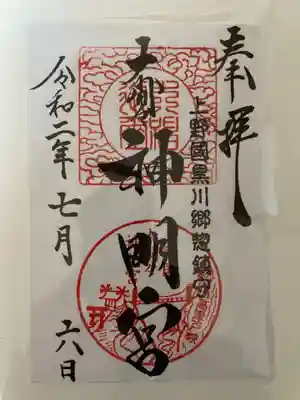 奉拝
上野國黒川郷惣鎮守
大間々神明宮
令和二年七月 六日